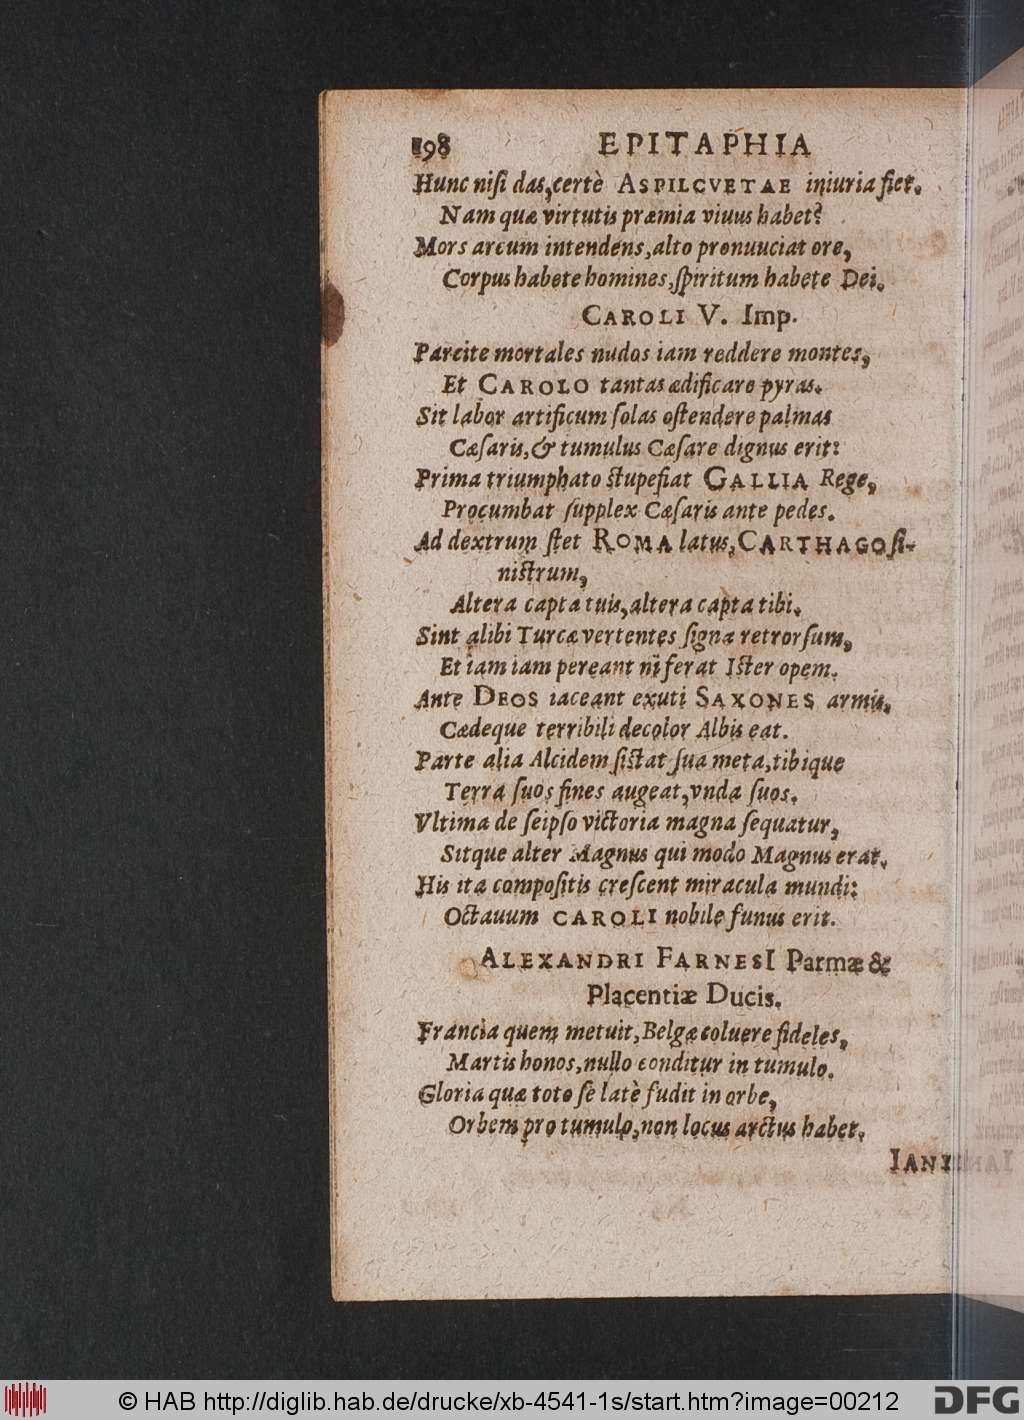 198 EPITAPHIA
Hunc nisi das, certè ASPILCVETAE iniuria fiet.
Nam quæ virtutis præmia viuus habet?
Mors arcum intendens, alto pronuuciat ore,
Corpus habete homines, spiritum habete Dei.
CAROLI V. Imp.
Parcite mortales nudos iam reddere montes,
Et CAROLO tantas ædificare pyras.
Sit labor artificum solas ostendere palmas
Cæsaris, & tumulus Cæsare dignus erit:
Prima triumphato stupefiat GALLIA Rege,
Procumbat supplex Cæsaris ante pedes.
Ad dextrum stet ROMA latus, CARTHAGO si-
nistrum,
Altera capta tuis, altera capta tibi.
Sint alibi Turcæ vertentes signa retrorsum,
Et iam iam pereant ni ferat Ister opem.
Ante DEOS iaceant exuti SAXONES armis,
Cædeque terribili decolor Albis eat.
Parte alia Alcidem sistat sua meta, tibique
Terra suos fines augeat, vnda suos.
Vltima de seipso victoria magna sequatur,
Sitque alter Magnus qui modo Magnus erat.
His ita compositis crescent miracula mundi:
Octauum CAROLI nobile funus erit.
ALEXANDRI FARNESI Parmæ &
Placentiæ Ducis.
Francia quem metuit, Belgæ coluere fideles,
Martis honos, nullo conditur in tumulo.
Gloria quæ toto se latè fudit in orbe,
Orbem pro tumulo, non locus arctus habet.
© HAB http://diglib.hab.de/drucke/xb-4541-1s/start.htm?image=00212
DFG